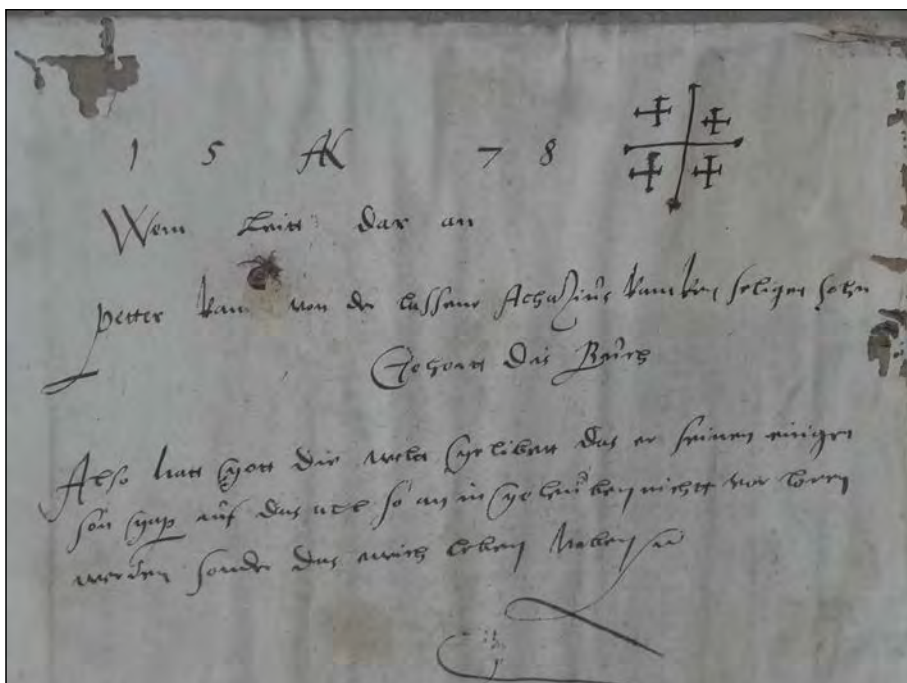 15 AK 78
Wem leitt dar an
petter kam von der lassene Achazius kamken seligen sohn
Gehortt das Buch
Also hatt Gott die welt Gelibett das er seinen einigen
son Gap auf das all so an in Gelauben nichtt vor loren
werden sonder das ewich leben haben